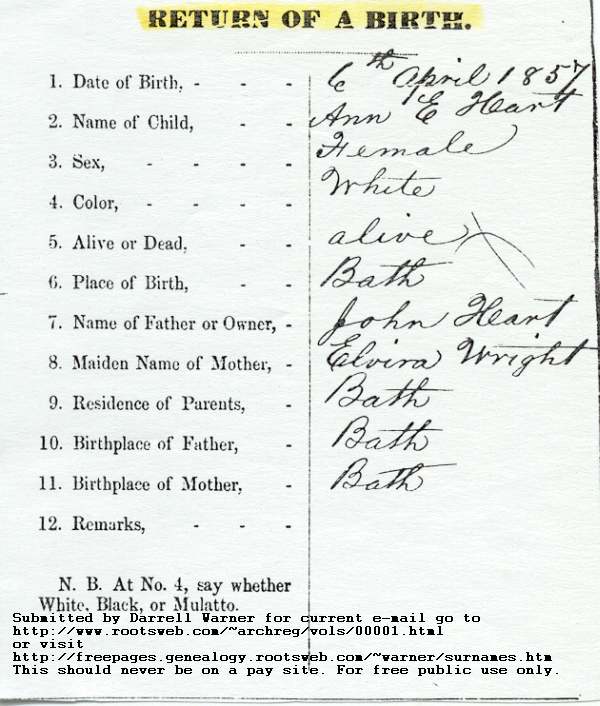 RETURN OF A BIRTH.
1. Date of Birth, - - - 6th April 1857
2. Name of Child, - - Ann E Heart
3. Sex, - - - - Female
4. Color, - - - - White
5. Alive or Dead, - - alive
6. Place of Birth, - - Bath
7. Name of Father or Owner, - John Heart
8. Maiden Name of Mother, - Elvira Wright
9. Residence of Parents, - Bath
10. Birthplace of Father, - Bath
11. Birthplace of Mother, - Bath
12. Remarks, - - -
N. B. At No. 4, say whether
White, Black, or Mulatto.
Submitted by Darrell Warner for current e-mail go to
http://www.rootsweb.com/~archreg/vols/00001.html
or visit
http://freepages.genealogy.rootsweb.com/~warner/surnames.htm
This should never be on a pay site. For free public use only.